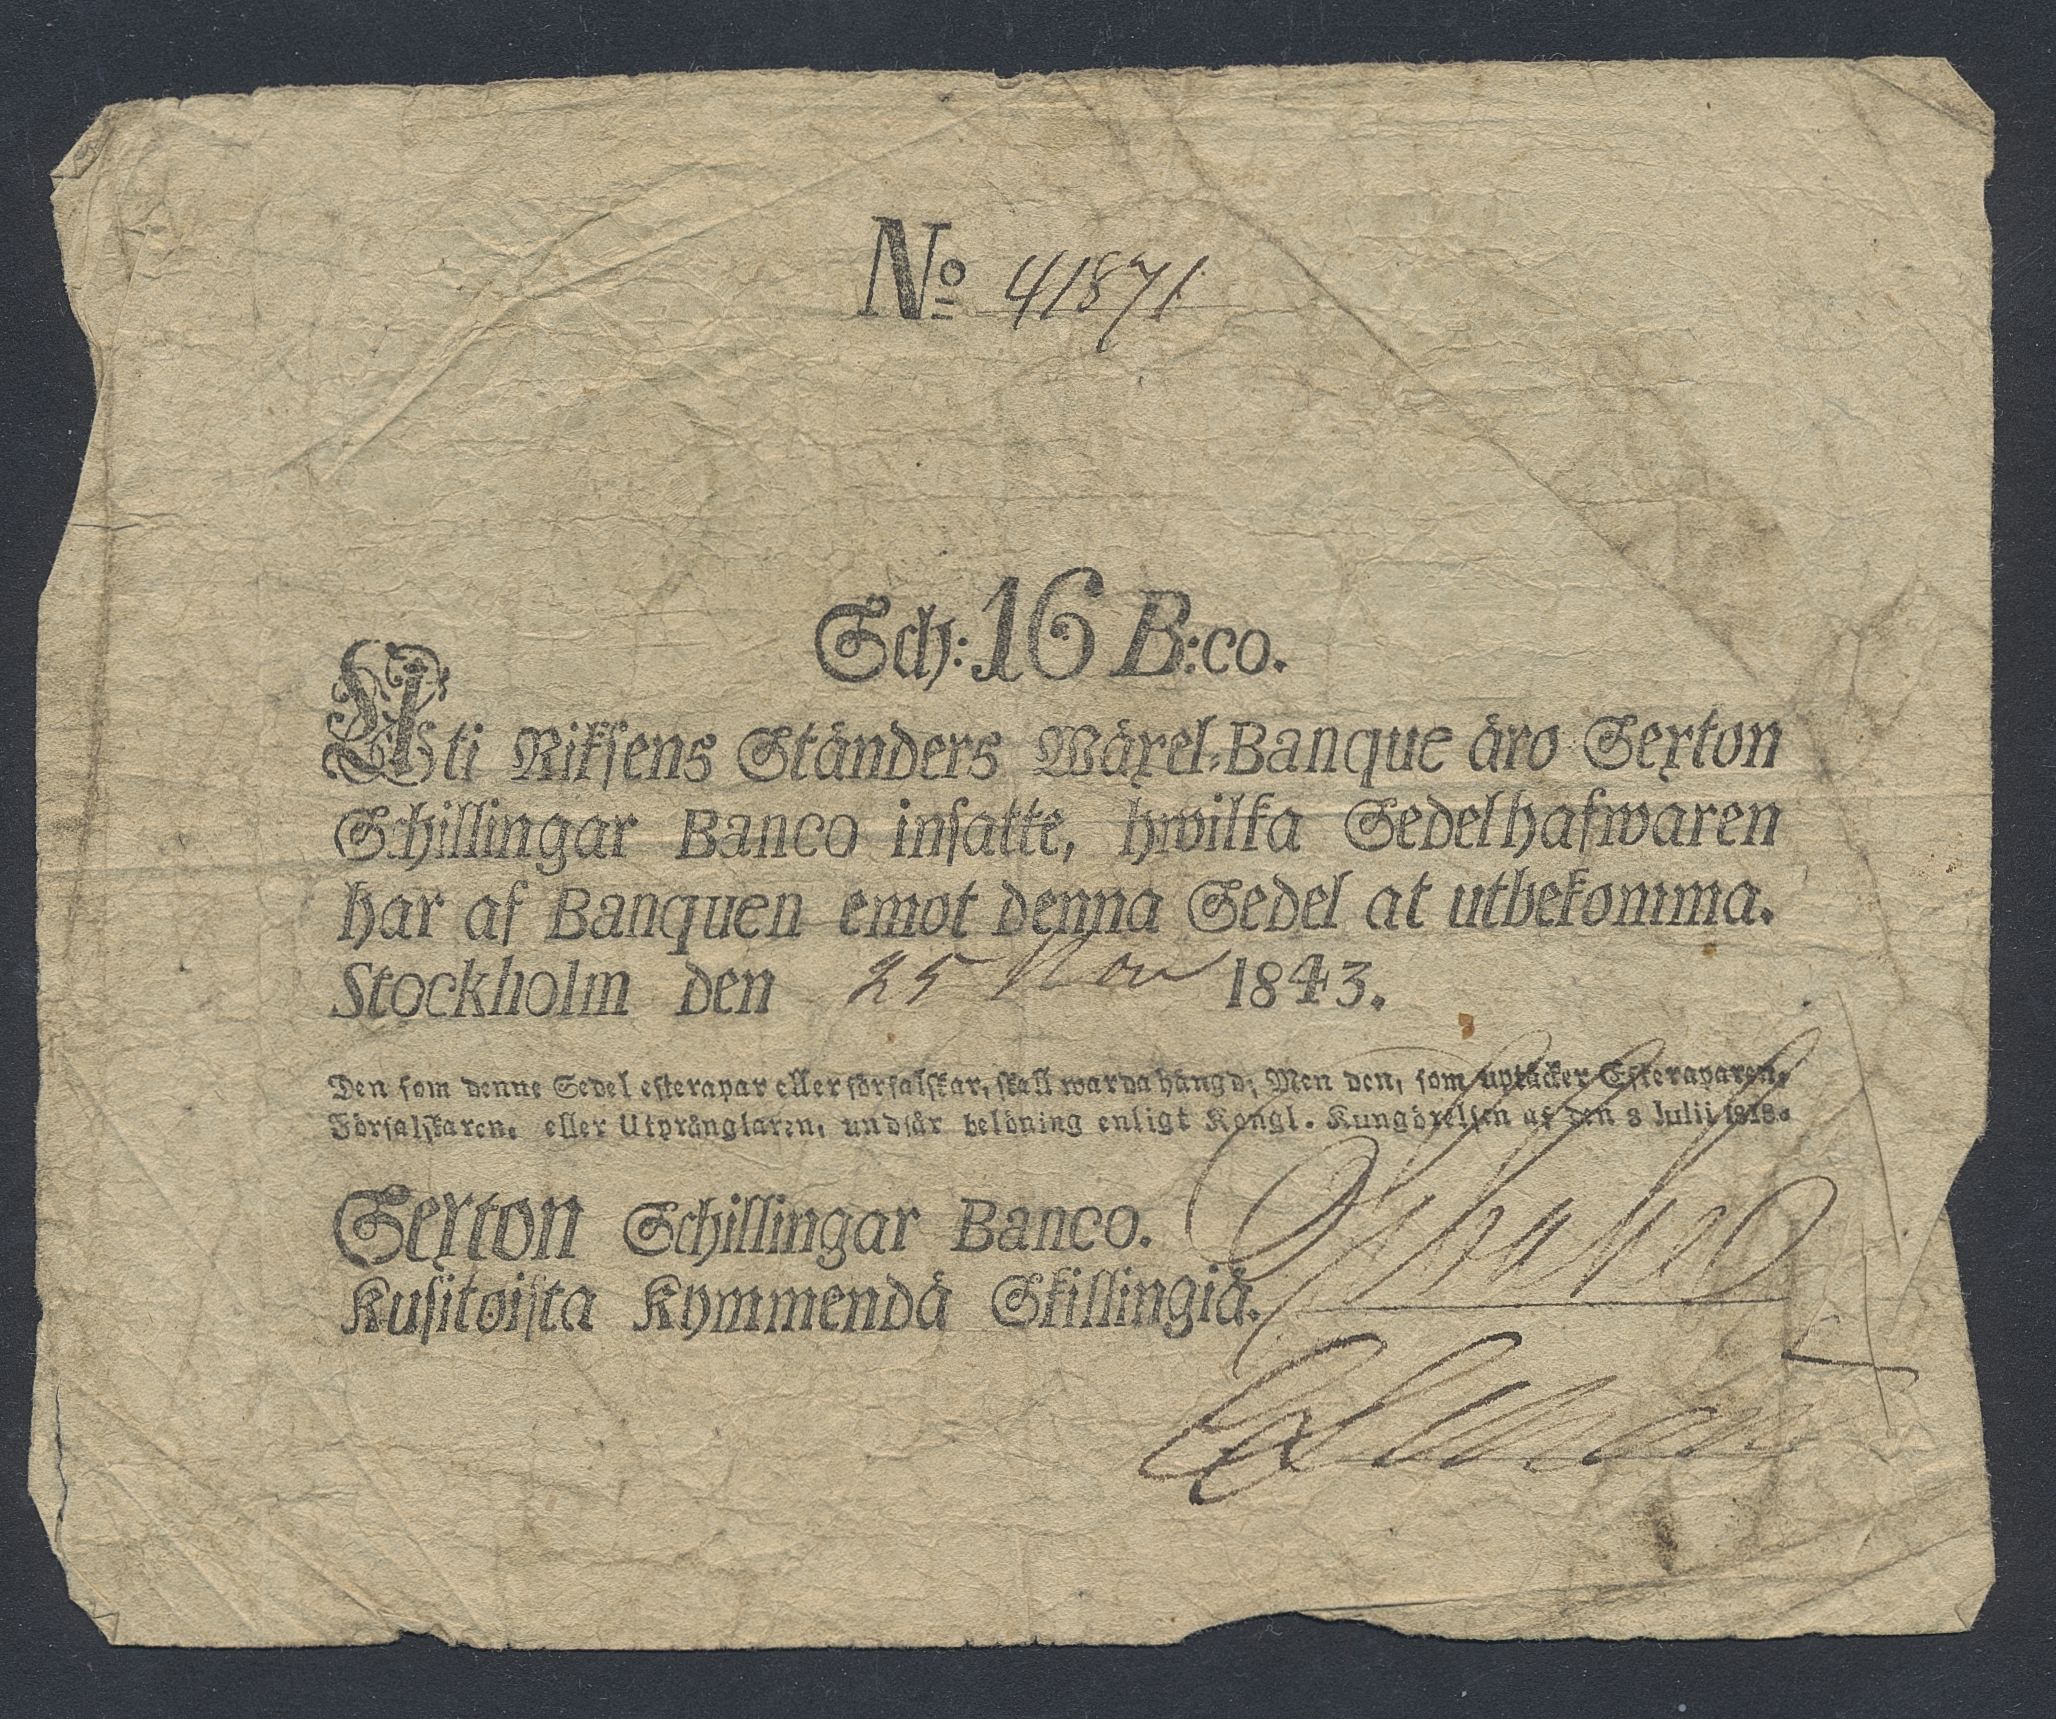 No 41871
Sch: 16 B:co.
Uti Riksens Ständers Wäxel-Banque äro Sexton
Schillingar Banco insatte, hwilka Sedelhafwaren
har af Banquen emot denna Sedel at utbekomma.
Stockholm den 25 Nov 1843.
Den som denne Sedel efterapar eller förfalskar, skall warda hängd; Men den, som uptäcker Efteraparen,
Förfalskaren, eller Utprånglaren, undfår belöning enligt Kongl. Kungörelsen af den 8 Julii 1818.
Sexton Schillingar Banco.
Kusitoista Kymmendä Skillingiä.